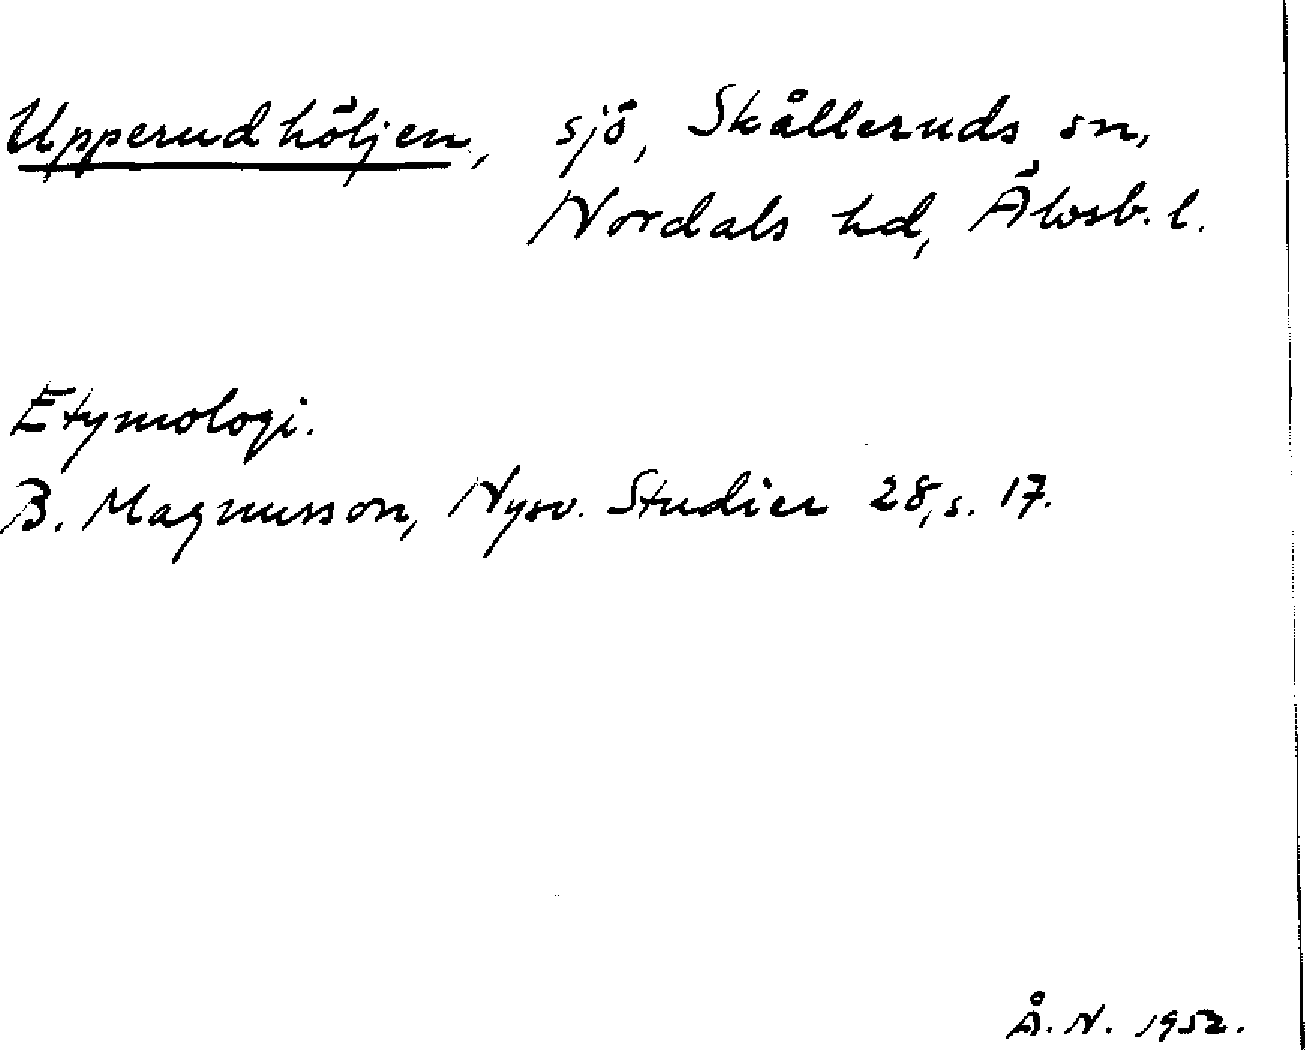 Upperudhöljen, sjö, Skålleruds sn,
Nordals hd, Älvsb. l.
Etymologi.
B. Magnusson, Nysv. Studier 28, s. 17.
Å. N. 1952.